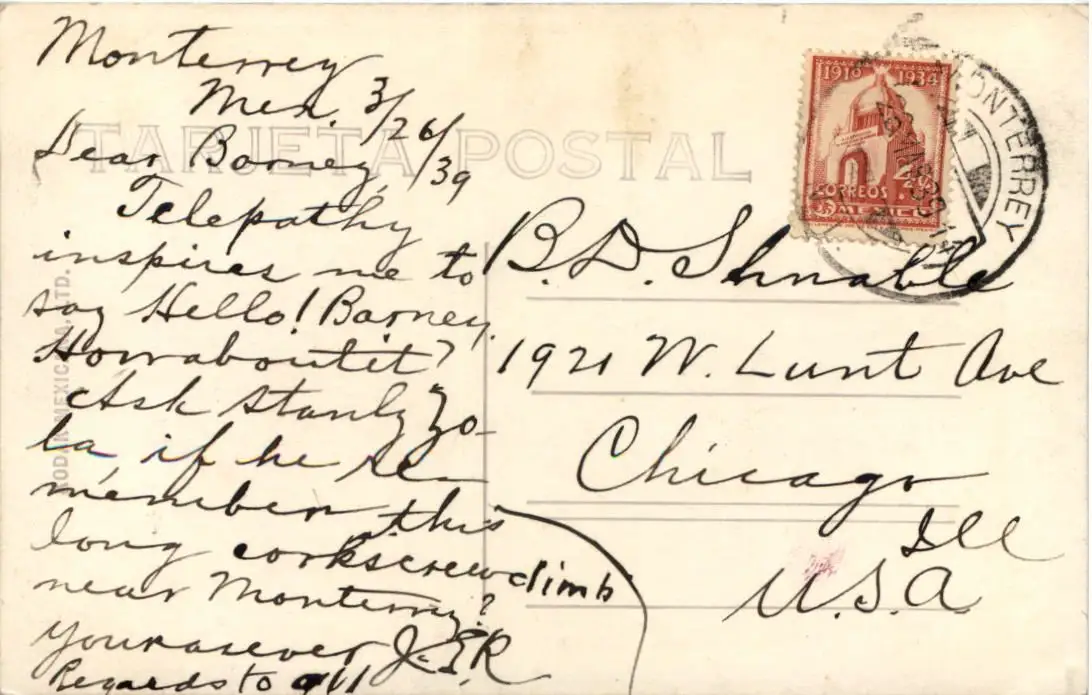 Monterrey
Mex. 3/26/39
TARJETA POSTAL
Dear Barney,
Telepathy
inspires me to
say Hello! Barney,
Howaboutit?
Ask Stanly Zo-
la, if he re-
member this
long corkscrew climb
near Monterrey?
Yourasever J.E.R
Regards to all
KODAK MEXICANA, LTD.
1910 1934
CORREOS
MEXICO
MONTERREY
B.D. Shnable
1921 W. Lunt Ave
Chicago
Ill
U.S.A.